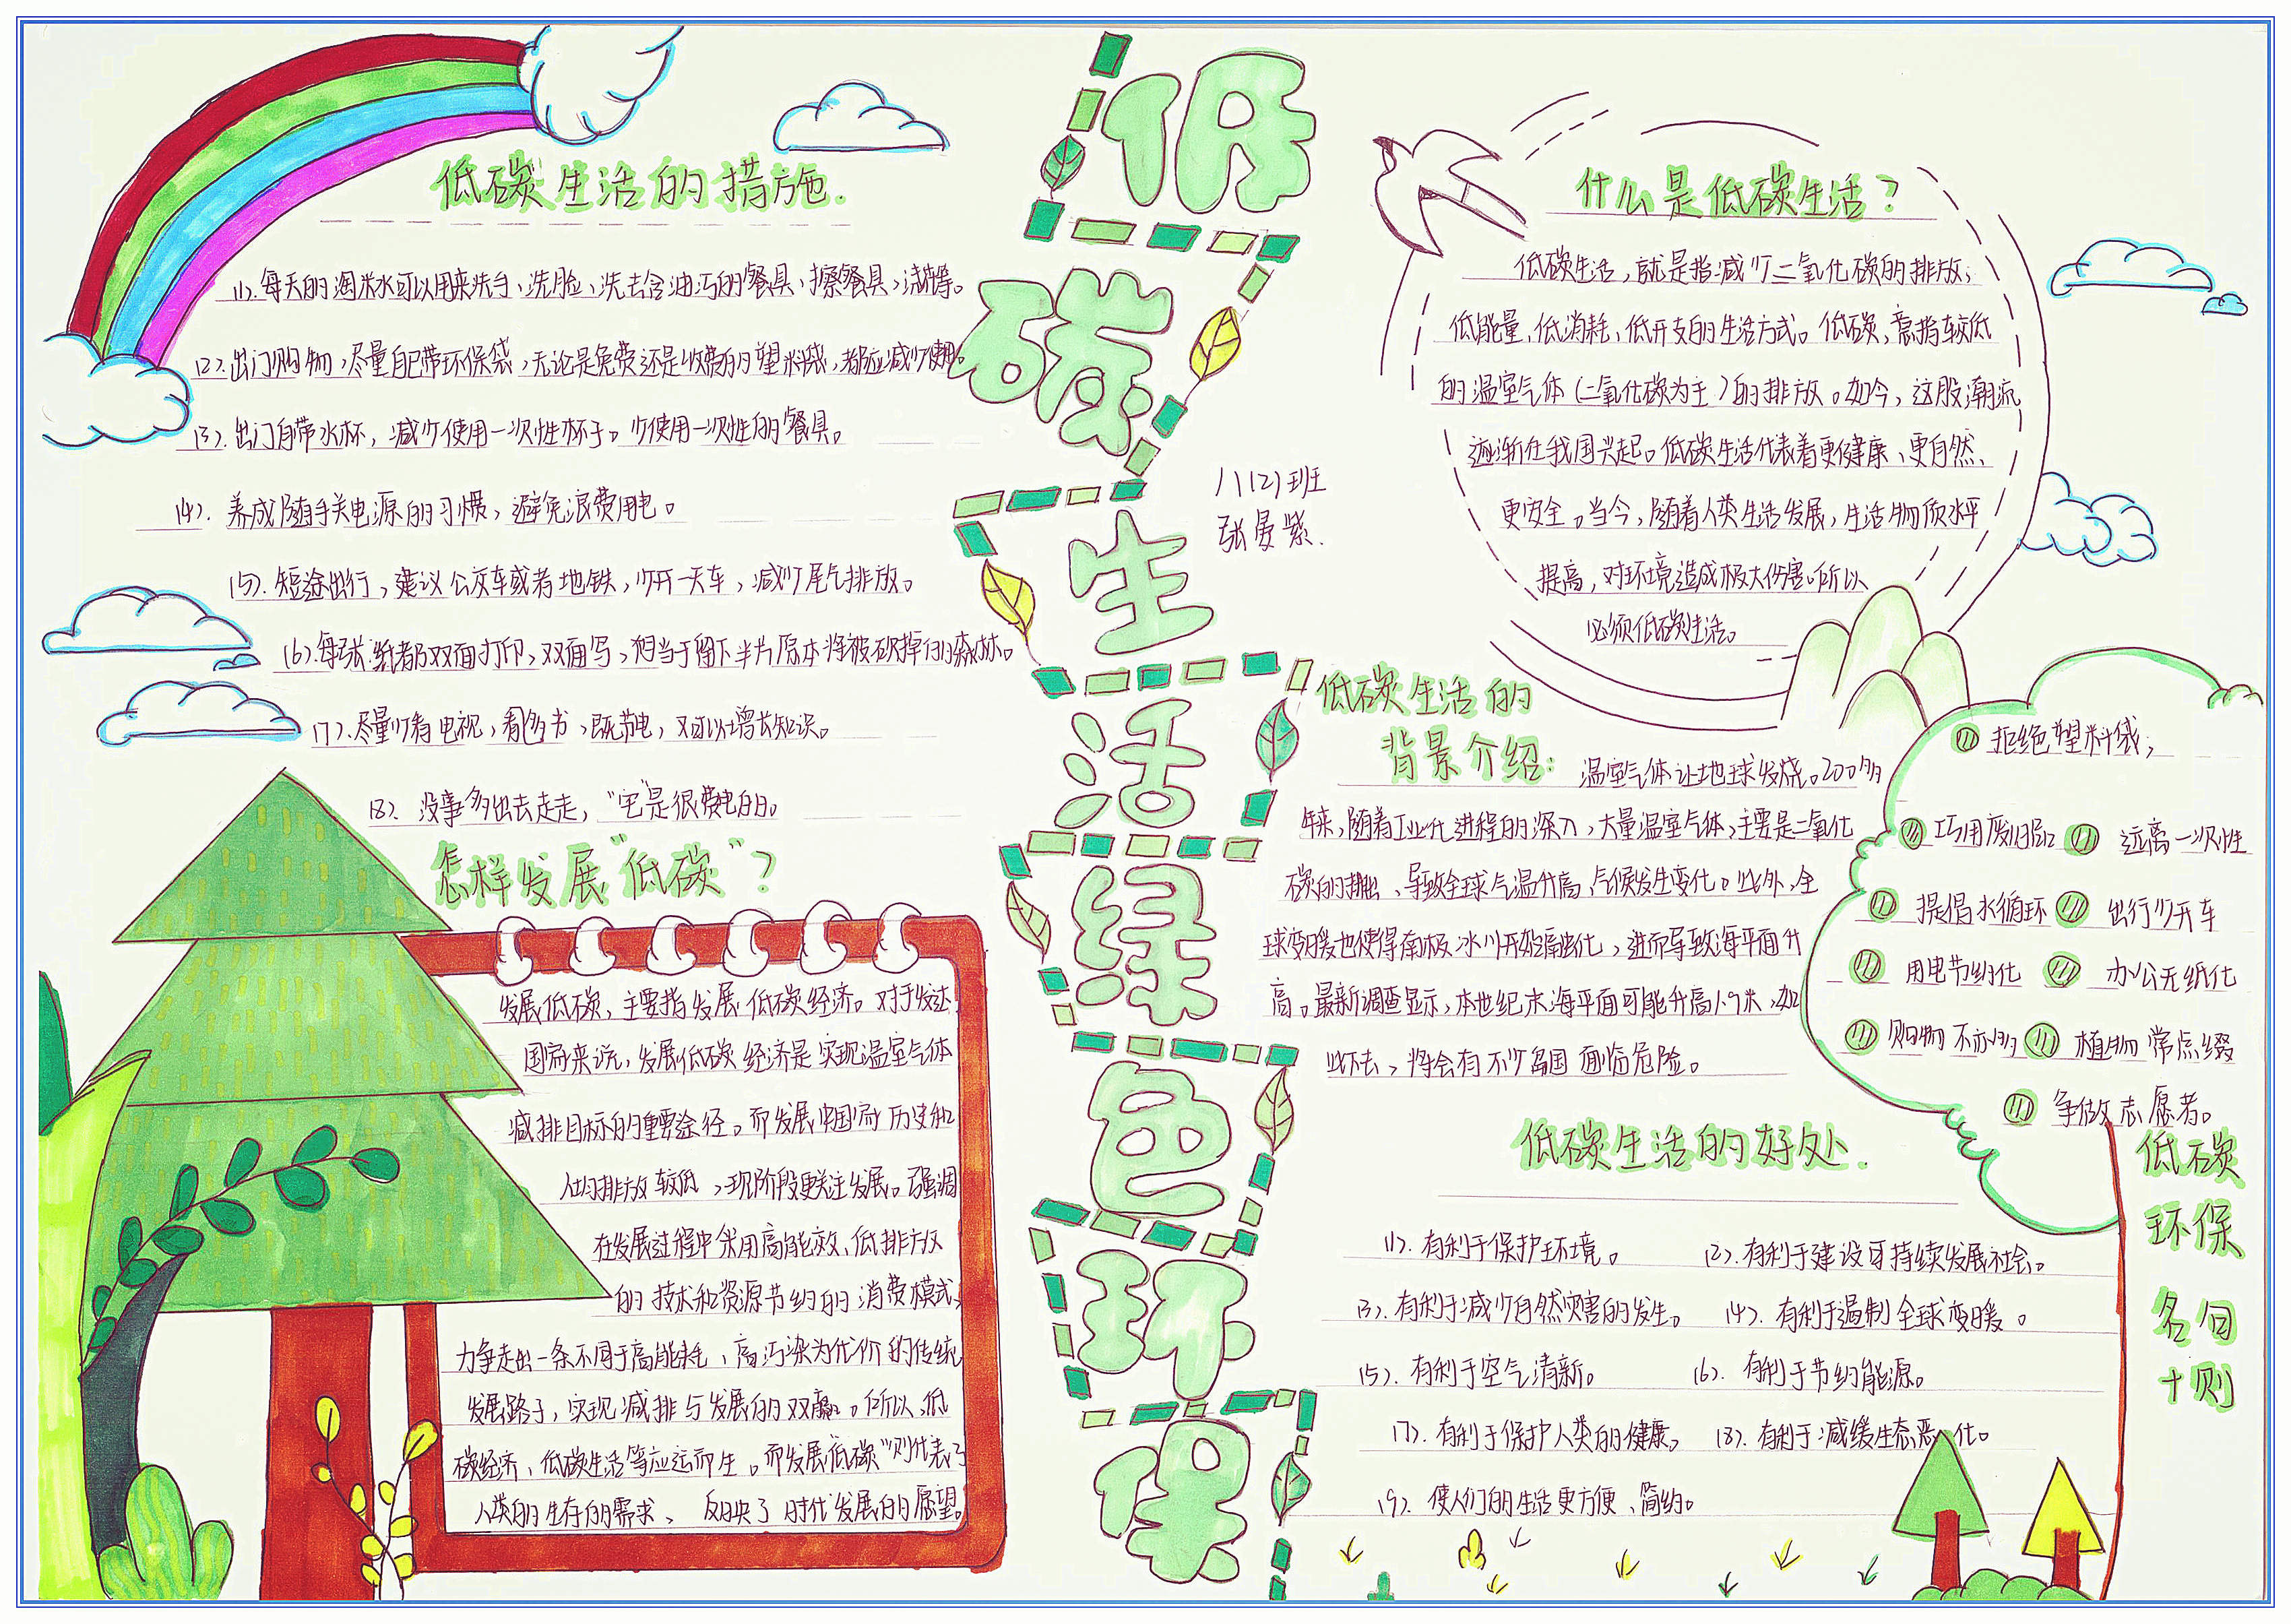 低碳生活绿色环保
八(2)班
张曼紫.
低碳生活的措施.
(1).每天的淘米水可以用来洗手、洗脸、洗去含油污的餐具、擦餐具,浇花等。
(2).出门购物,尽量自己带环保袋,无论是免费还是收费的塑料袋,都应减少使用。
(3).出门自带水杯,减少使用一次性杯子。少使用一次性的餐具。
(4).养成随手关电源的习惯,避免浪费用电。
(5).短途出行,建议公交车或者地铁,少开一天车,减少尾气排放。
(6).每张纸都双面打印,双面写,相当于留下半片原本将被砍掉的森林。
(7).尽量少看电视,看多书,既节电,又可以增长知识。
(8).没事多出去走走,“宅”是很费电的。
怎样发展“低碳”?
发展低碳,主要指发展低碳经济。对于发达
国家来说,发展低碳经济是实现温室气体
减排目标的重要途径。而发展中国家历史和
人均排放较低,现阶段更关注发展。强调
在发展过程中采用高能效、低排放
的技术和资源节约的消费模式,
力争走出一条不同于高能耗、高污染为代价的传统
发展路子,实现减排与发展的双赢。所以,低
碳经济、低碳生活等应运而生。而发展低碳”则代表了
人类的生存的需求、反映了时代发展的愿望。
什么是低碳生活?
低碳生活,就是指减少二氧化碳的排放,
低能量,低消耗,低开支的生活方式。低碳,意指较低
的温室气体(二氧化碳为主)的排放。如今,这股潮流
逐渐在我国兴起。低碳生活代表着更健康、更自然、
更安全。当今,随着人类生活发展,生活物质水平
提高,对环境造成极大伤害。所以
必须低碳生活。
低碳生活的
背景介绍:
温室气体让地球发烧。200多
年来,随着工业化进程的深入,大量温室气体,主要是二氧化
碳的排出、导致全球气温升高、气候发生变化。此外,全
球变暖也使得南极冰川开始融化,进而导致海平面升
高。最新调查显示,本世纪末海平面可能升高1.9米,如
此下去,将会有不少岛国面临危险。
低碳生活的好处.
(1).有利于保护环境。 (2).有利于建设可持续发展社会。
(3).有利于减少自然灾害的发生。 (4).有利于遏制全球变暖。
(5).有利于空气清新。 (6).有利于节约能源。
(7).有利于保护人类的健康。 (8).有利于减缓生态恶化。
(9).使人们的生活更方便、简约。
低碳
环保
名句
十则
拒绝塑料袋;
巧用废旧品 远离一次性
提倡水循环 出行少开车
用电节约化 办公无纸化
购物不 植物常点缀
争做志愿者。